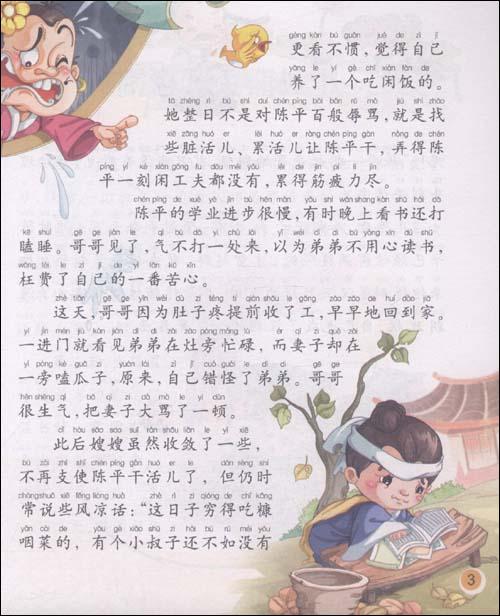 gèng kàn bú guàn jué de zì jǐ
更看不惯,觉得自己
yǎng le yí gè chī xián fàn de
养了一个吃闲饭的。
tā zhěng rì bú shì duì chén píng bǎi bān rǔ mà jiù shì zhǎo
她整日不是对陈平百般辱骂,就是找
xiē zāng huó er lèi huó er ràng chén píng gàn nòng de chén
些脏活儿、累活儿让陈平干,弄得陈
píng yí kè xián gōng fu dōu méi yǒu lèi de jīn pí lì jìn
平一刻闲工夫都没有,累得筋疲力尽。
chén píng de xué yè jìn bù hěn màn yǒu shí wǎn shang kàn shū hái dǎ
陈平的学业进步很慢,有时晚上看书还打
kē shuì gē ge jiàn le qì bù dǎ yí chù lái yǐ wéi dì di bú yòng xīn dú shū
瞌睡。哥哥见了,气不打一处来,以为弟弟不用心读书,
wǎng fèi le zì jǐ de yì fān kǔ xīn
枉费了自己的一番苦心。
zhè tiān gē ge yīn wèi dù zi téng tí qián shōu le gōng zǎo zǎo de huí dào jiā
这天,哥哥因为肚子疼提前收了工,早早地回到家。
yí jìn mén jiù kàn jiàn dì di zài zào páng máng lù ér qī zi què zài
一进门就看见弟弟在灶旁忙碌,而妻子却在
yì páng kè guā zǐ yuán lái zì jǐ cuò guài le dì di gē ge
一旁嗑瓜子,原来,自己错怪了弟弟。哥哥
hěn shēng qì bǎ qī zi dà mà le yí dùn
很生气,把妻子大骂了一顿。
cǐ hòu sǎo sao suī rán shōu liǎn le yì xiē
此后嫂嫂虽然收敛了一些,
bú zài zhī shǐ chén píng gàn huó er le dàn réng shí
不再支使陈平干活儿了,但仍时
cháng shuō xiē fēng liáng huà zhè rì zi qióng de chī kāng
常说些风凉话:“这日子穷得吃糠
yàn cài de yǒu gè xiǎo shū zi hái bù rú méi yǒu
咽菜的,有个小叔子还不如没有
3